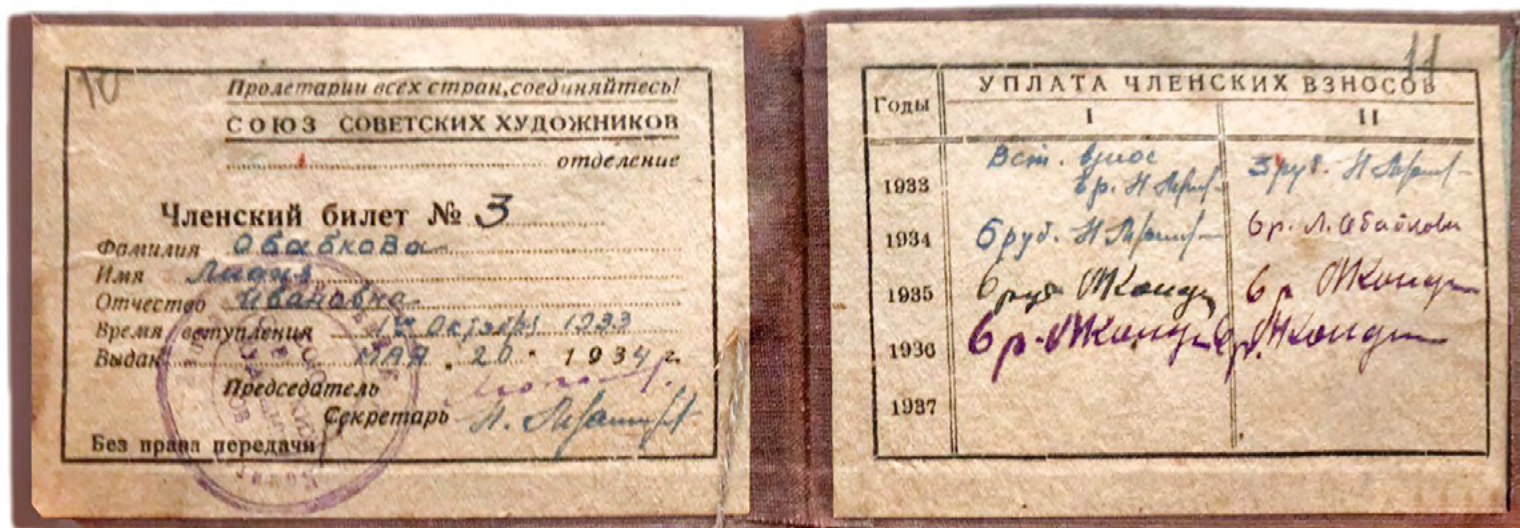 10
Пролетарии всех стран, соединяйтесь!
СОЮЗ СОВЕТСКИХ ХУДОЖНИКОВ
отделение
Членский билет № 3
Фамилия Абабкова
Имя Лидия
Отчество Ивановна
Время вступления 1го Октября 1933
Выдан МАЯ 20. 1934 г.
Председатель
Секретарь Н.
Без права передачи
11
Годы УПЛАТА ЧЛЕНСКИХ ВЗНОСОВ
I II
1933 Вст. взнос
6 р. Н 3 руб. Н
1934 6 руб. Н 6 р. Л. Абабкова
1935 6 руб 6 р
1936 6 р. 6 р.
1937